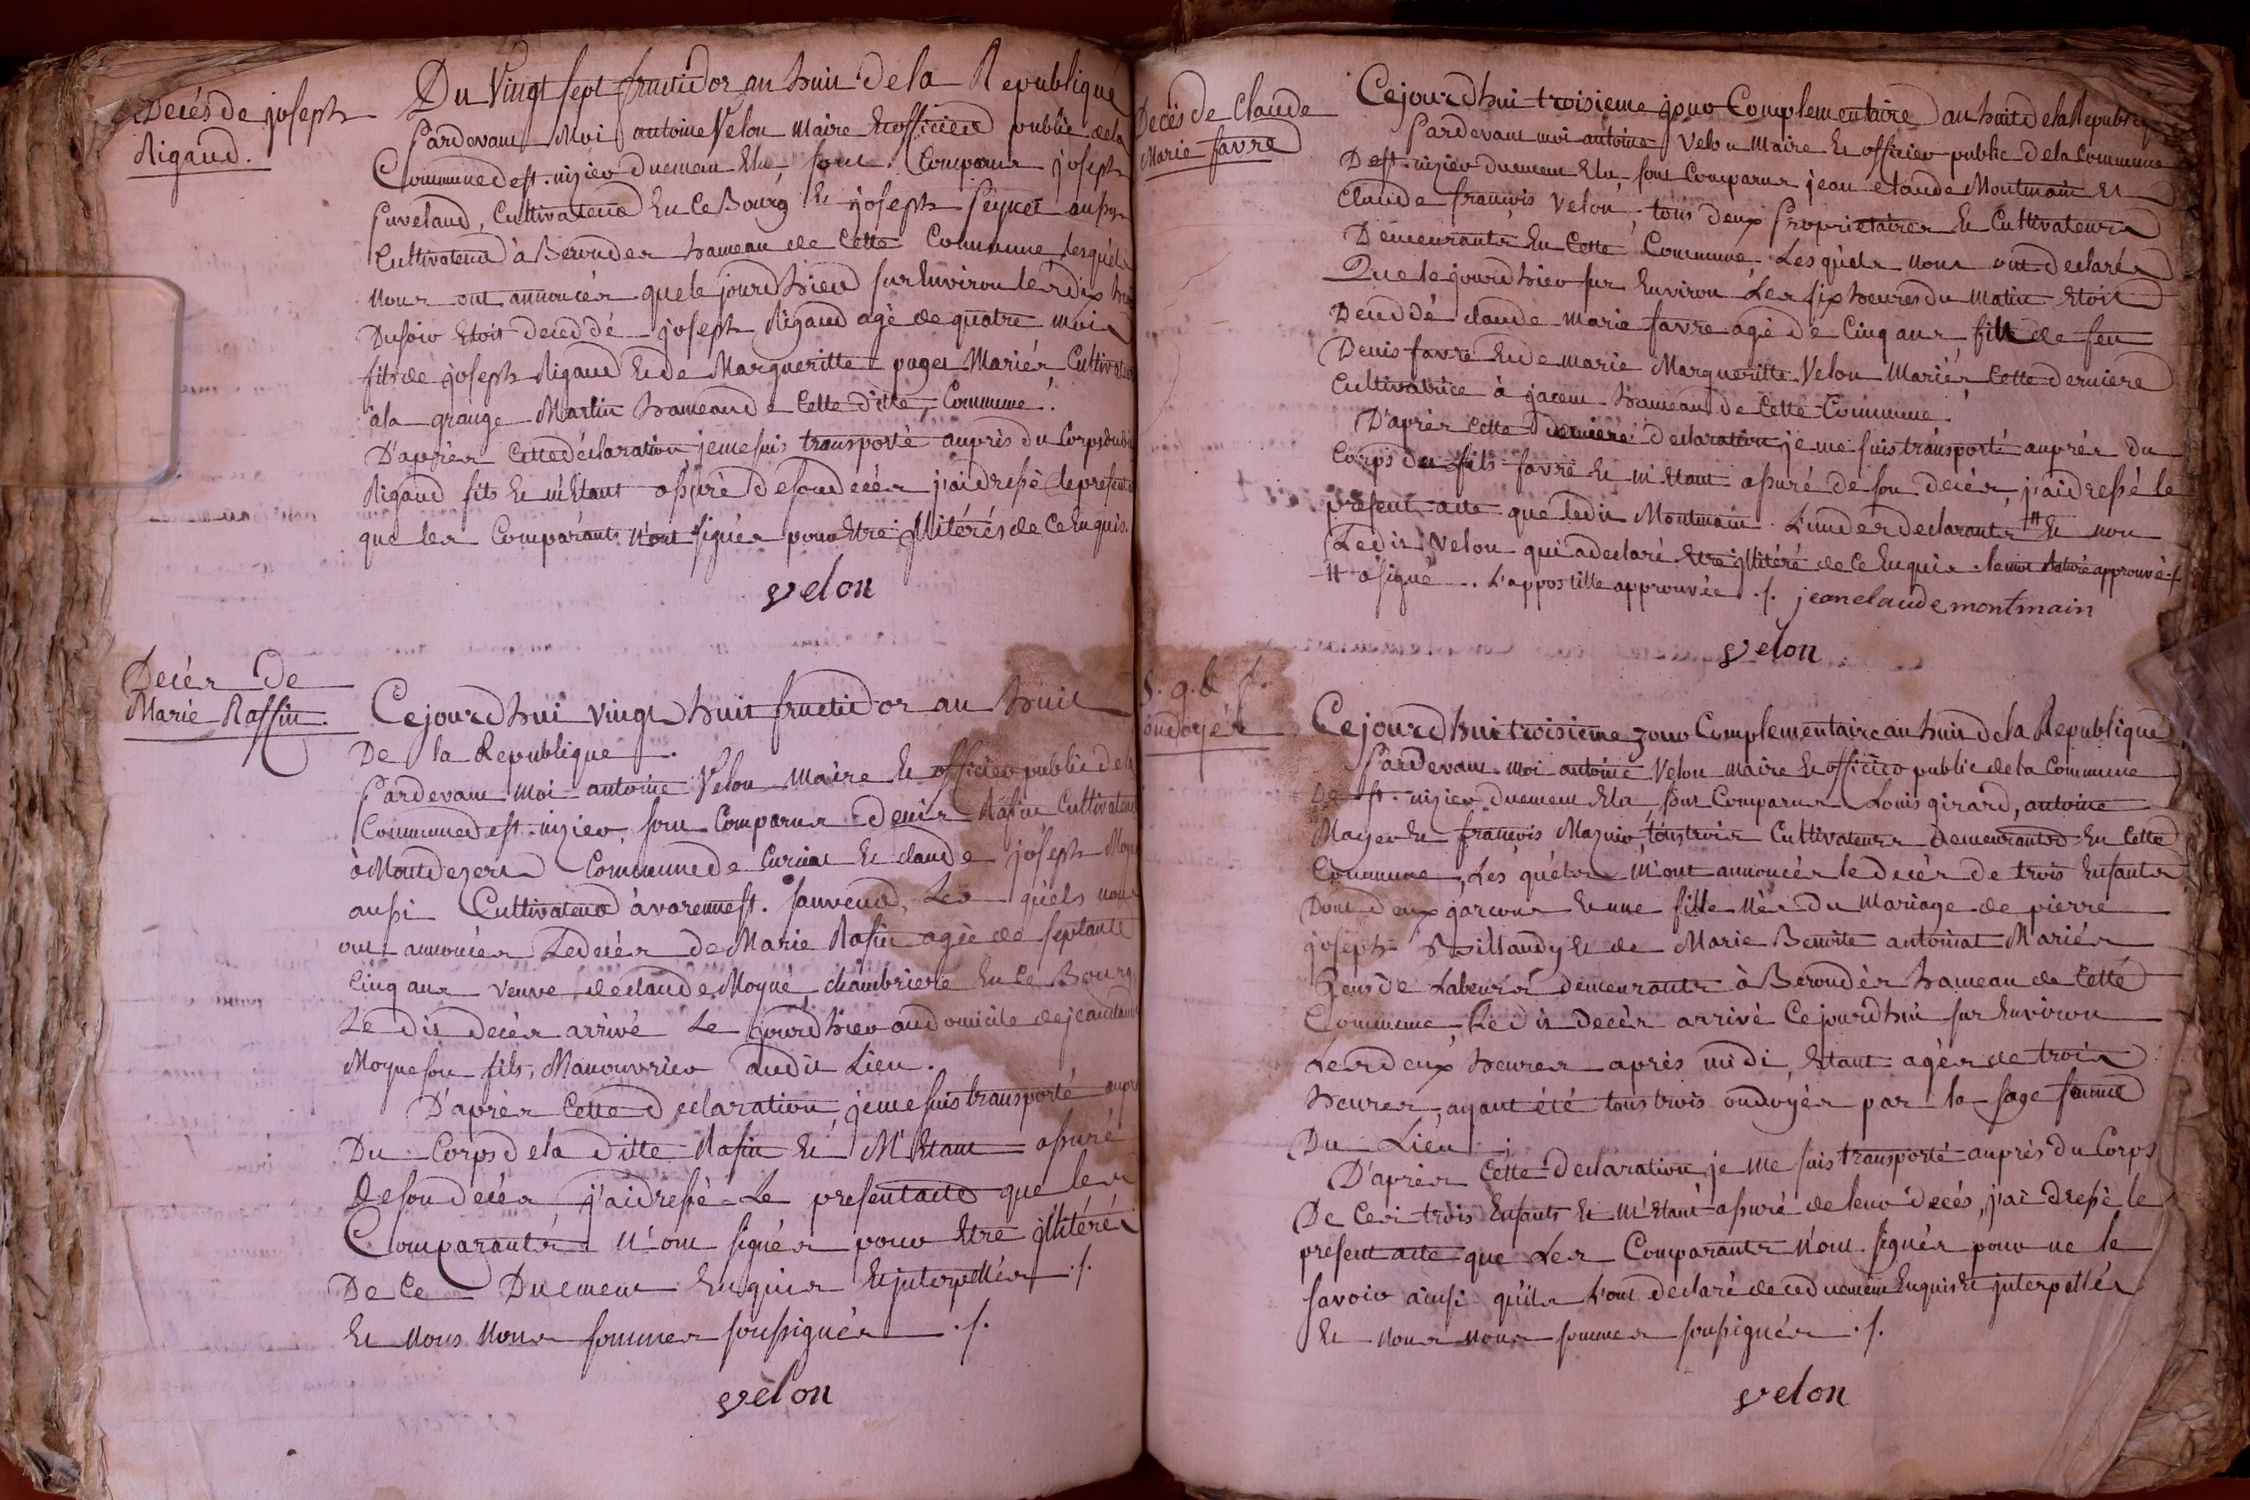 Decés de joseph
Rigaud.
Du Vingt sept fructidor an huit de la Republique
Pardevant Moi antoine Velon Maire Et officier public de la
Commune de st. nizier duement Elu, sont Comparus joseph
Cultivateur En ce Bourg Et joseph Peynet aussy
Cultivateur à Beroudes hameau de Cette Commune lesquels
nous ont annoncés que le jourd'hier sur Environ les dix
Du soir Etoit deceddé joseph Rigaud agé de quatre mois
fils de joseph Rigaud Et de Margueritte paget Mariés Cultivateurs
à la grange Martin hameau de Cette ditte Commune.
D'après Cette déclaration je me suis transporté auprès du Corps dudit
Rigaud fils Et m'Etant assuré de son decés j'ai dressé le present
que les Comparants n'ont signés pour Etre jllitérés de ce Enquis.
velon
Decés de
Marie Raffin.
Cejourd'hui vingt huit fructidor an huit
De la Republique.
Pardevant moi antoine Velon Maire Et officier public de la
Commune de st. nizier, sont Comparus denis Rafin Cultivateur
à Montdezert Commune de Curciat Et claude joseph
aussi Cultivateur à varenne st. sauveur, Les quels nous
ont annoncés Le decés de Marie Rafin agée de septante
Cinq ans veuve de claude Moyne chambriere En ce Bourg
Le dit decés arrivé Le jourd'hier au domicile de jean claude
Moyne son fils, Manouvrier audit Lieu.
D'après Cette declaration je me suis transporté
Du Corps de la ditte Rafin Et M'Etant assuré
De son decés j'ai dressé Le present acte que les
Comparants n'ont signés pour Etre jllitérés
De Ce Duement Enquis Et jnterpellés ./.
Et nous nous sommes soussignés ./.
velon
Decés de Claude
Marie favre
Cejourd'hui troisieme jour Complementaire an huit de la Republique
Pardevant moi antoine Velon Maire Et officier public de la Commune
De st. nizier duement Elu, sont Comparus jean claude Montmain Et
Claude françois Velon, tous deux Proprietaires Et Cultivateurs
Demeurants En Cette Commune, Lesquels nous ont declarés
Que le jourd'hier sur Environ Les six heures du matin Etoit
Deceddé claude marie favre agé de Cinq ans fils de feu
Denis favre Et de marie Margueritte Velon Mariés Cette derniere
Cultivatrice à hameau de Cette Commune.
D'après Cette declaration je me suis transporté auprés du
Corps du fils favre Et m'Etant assuré de son decés, j'ai dressé le
present acte que ledit Montmain L'un des declarants # Et non
Ledit Velon qui a declaré Etre jllitéré de ce Enquis le mot approuvé ./.
# a signé. L'appostille approuvée ./. jean claude montmain
velon
ondoyés
Cejourd'hui troisieme jour Complementaire an huit de la Republique
Pardevant moi antoine Velon maire Et officier public de la Commune
De st. nizier duement Elu, sont Comparus Louis girard, antoine
Mayer Et françois Magnin tous trois Cultivateurs Demeurants En Cette
Commune, Lés quéls m'ont annoncés le decés de trois Enfants
Dont deux garçons Et une fille nés du Mariage de pierre
joseph Billaudy Et de Marie Benoite antoinat Mariés
Gens de Labeurs demeurants à Beroudès hameau de Cette
Commune, Ledit Decés arrivé Cejourd'hui sur Environ
Les deux heures après midi, Etant agés de trois
heures, ayant été tous trois ondoyés par la sage femme
Du Lieu.
D'après Cette declaration je me suis transporté auprès du Corps
De Ces trois Enfants Et m'Etant assuré de leur decés, j'ai dressé le
present acte que Les Comparants n'ont signés pour ne le
savoir ainsi qu'ils L'ont declaré de ce duement Enquis Et jnterpellés
Et nous nous sommes soussignés ./.
velon